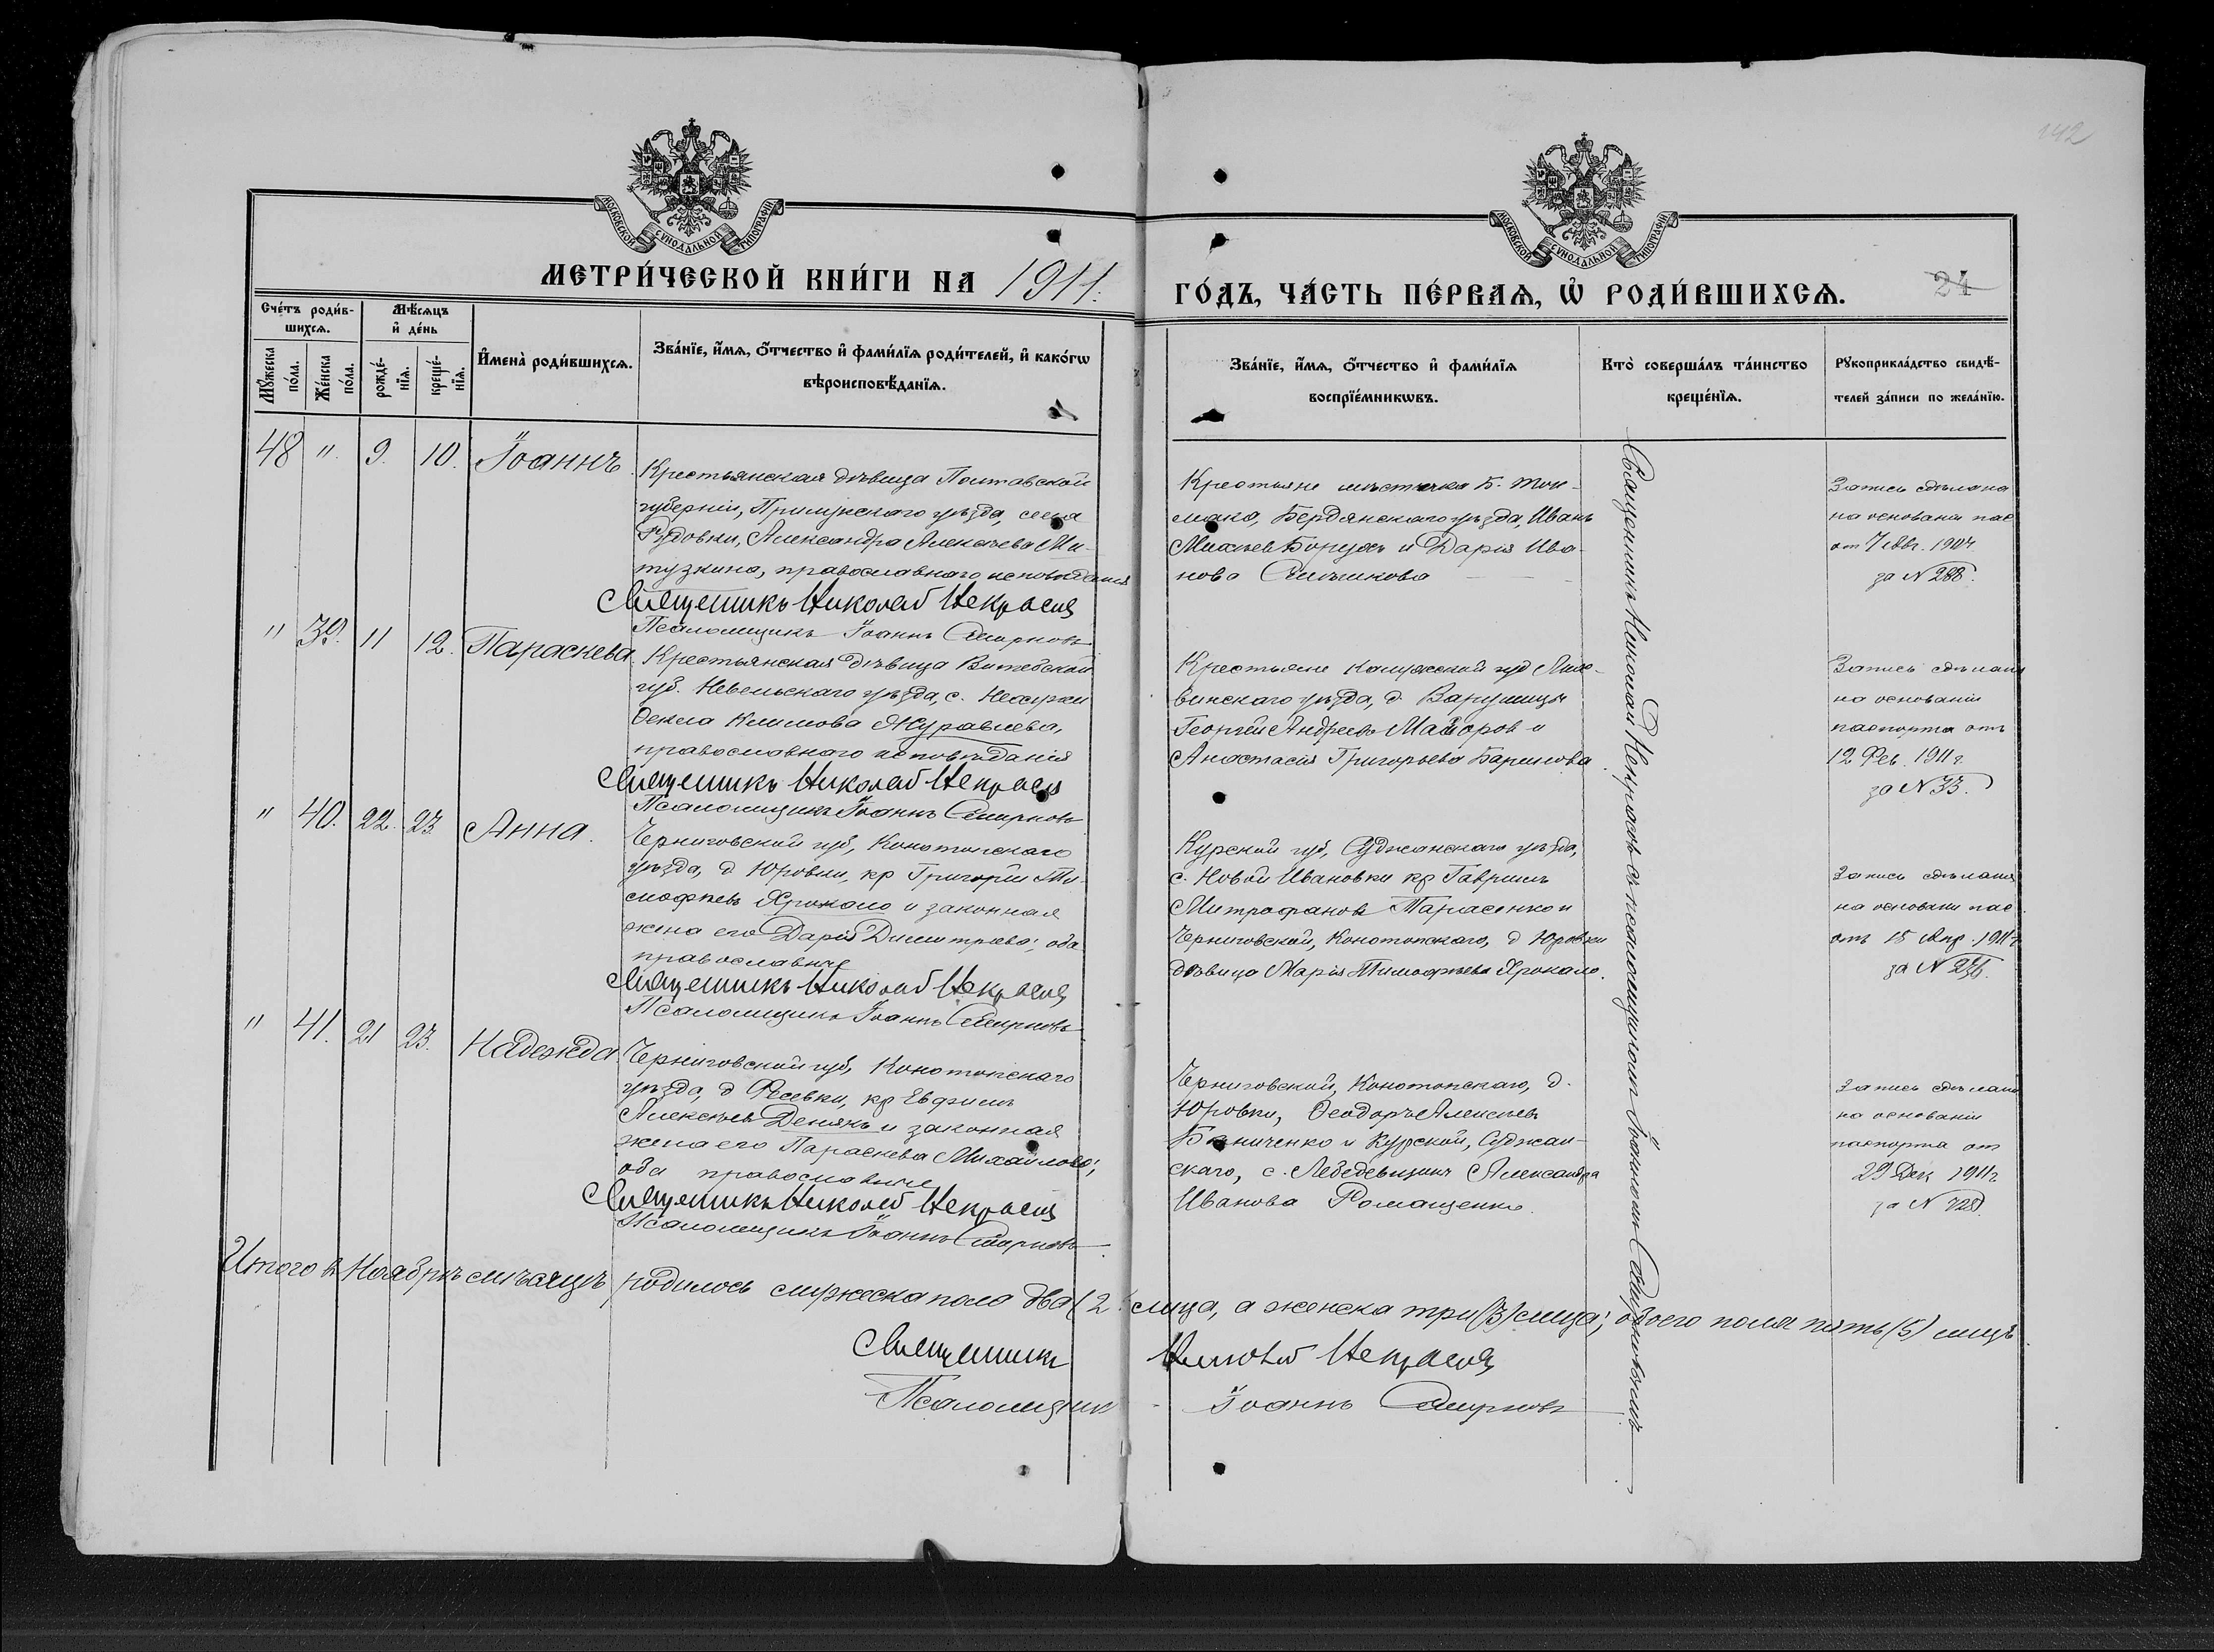 142
МОСКОВСКОЙ СѴНОДАЛЬНОЙ ТИПОГРАФІИ
МОСКОВСКОЙ СѴНОДАЛЬНОЙ ТИПОГРАФІИ
МЕТРИ́ЧЕСКОЙ КНИ́ГИ НА 1911.
ГО́ДЪ, ЧА́СТЬ ПЕ́РВАѦ, Ѽ РОДИ́ВШИХСѦ.
24
Сче́тъ роди́в-
шихсѧ.
Мꙋ́жеска
по́ла.
Же́нска
по́ла.
Мѣ́сѧцъ
и҆ де́нь
рожде́-
нїѧ.
креще́-
нїѧ.
И҆мена̀ роди́вшихсѧ.
Зва́нїе, и҆́мѧ, ѻ҆́тчество и҆ фами́лїѧ роди́телей, и҆ како́гѡ
вѣроисповѣ́данїѧ.
Зва́нїе, и҆́мѧ, ѻ҆́тчество и҆ фами́лїѧ
воспрїе́мникѡвъ.
Кто̀ соверша́лъ та́инство
креще́нїѧ.
Рꙋкоприкла́дство свидѣ́-
телей за́писи по жела́нїю.
48 " 9. 10. Іоаннъ.
Крестьянская дѣвица Полтавской
губерніи, Прилукскаго уѣзда, села
Рудовки, Александра Алексѣева Ми-
тузкина, православнаго исповѣданія
Священникъ Николай Некрасовъ
Псаломщикъ Іоаннъ Смирновъ
Крестьяне мѣстечка Б. Ток-
мака, Бердянскаго уѣзда, Иванъ
Михѣевъ и Дарія Ива-
нова
Запись сдѣлана
на основаніи пас
от 7 Авг. 1904
за № 288.
" 39. 11 12. Параскева
Крестьянская дѣвица Витебской
губ. Невельскаго уѣзда, с.
Ѳекла Климова Журавлева,
православнаго исповѣданія
Священникъ Николай Некрасовъ
Псаломщикъ Іоаннъ Смирновъ
Крестьяне Калужской губ Лих-
винскаго уѣзда, д.
Георгій Андреевъ Маіоров и
Анастасія Григорьева Баринова
Запись сдѣлана
на основаніи
паспорта отъ
12 Фев. 1911 г
за № 33.
" 40. 22. 23. Анна.
Черниговской губ, Конотопскаго
уѣзда, д Юровки, кр Григорій Ти-
мофѣевъ Хрокало и законная
жена его Дарія Димитріева; оба
православные
Священникъ Николай Некрасовъ
Псаломщикъ Іоаннъ Смирновъ
Курской губ, Суджанскаго уѣзда,
с. Новой Ивановки кр Гавріилъ
Митрофановъ Тарасенко и
Черниговской, Конотопскаго, д Юровки
дѣвица Марія Тимофѣева Хрокало.
Запись сдѣлана
на основаніи пас
отъ 15 Апр. 1911 г
за № 236.
" 41. 21 23. Надежда.
Черниговской губ, Конотопскаго
уѣзда, д Фесевки, кр Евфимъ
Алексѣевъ Денякъ и законная
жена его Параскева Михайлова;
оба православные
Священникъ Николай Некрасовъ
Псаломщикъ Іоаннъ Смирновъ
Черниговской, Конотопскаго, д.
Юровки, Ѳеодоръ Алексѣевъ
и Курской, Суджан-
скаго, с. Александра
Иванова Ромащенко.
Запись сдѣлана
на основаніи
паспорта от
29 Дек 1911 г
за № 728
Священникъ Николай Некрасовъ съ псаломщикомъ Іоанномъ Смирновымъ
Итого въ Ноябрѣ мѣсяцѣ родилось мужеска пола два (2) лица, а женска три (3) лица; обоего пола пять (5) лицъ.
Священникъ Николай Некрасовъ
Псаломщикъ Іоаннъ Смирновъ